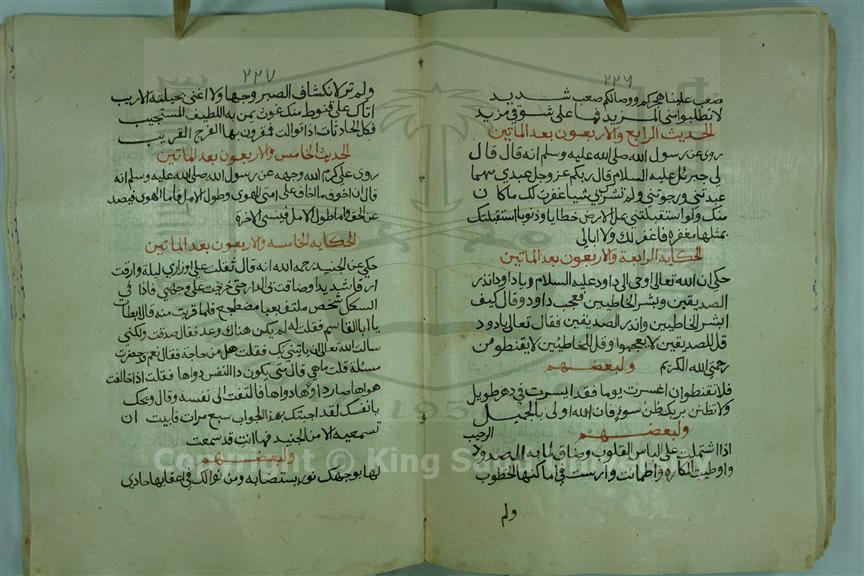 ٢٢٦
صعب علينا هجركم ووصالكم صعب شديد
لا تطلبوا مني المزيد فما على شوقي مزيد
الحديث الرابع والاربعون بعد الماتين
روى عن رسول الله صلى الله عليه وسلم انه قال قال
لي جبرئل عليه السلام قال ربكم عز وجل عبدي مهما
عبدتني ورجوتني ولم تشرك بي شيا غفرت لك ما كان
منك ولو استقبلتني بملء الارض خطايا وذنوبا استقبلتك
بمثلها مغفرة فاغفر لك ولا ابالي
الحكاية الرابعة والاربعون بعد الماتين
حكى ان الله تعالى اوحى الى داود عليه السلام يا داود انذر
الصديقين وبشر الخاطيين فعجب داود وقال كيف
ابشر الخاطيين وانذر الصديقين فقال تعالى يا داود
قل للصديقين لا يعجبوا وقل للخاطئين لا يقنطو من
رحمتي الله الكريم ولبعضهم
فلا تقنطوا ان اعسرت يوما فقد ايسرت في دهر طويل
ولا تظنن بربك ظن سوء فان الله اولى بالجميل
ولبعضهم
اذا اشتملت على الياس القلوب وضاق لما به الصدر الرحيب
واوطيت المكاره واطمانت وارست في اماكنها الخطوب
ولم
٢٢٧
ولم تر لانكشاف الصبر وجها ولا اغنى بحيلته الاريب
اتاك على قنوط منك غوث يمن به اللطيف المستجيب
فكل الحادثات اذا توالت فمقرون بها الفرج القريب
الحديث الخامس والاربعون بعد الماتين
روى علي كرم الله وجهه عن رسول الله صلى الله عليه وسلم انه
قال ان اخوف ما اخاف على امتي الهوى وطول الامل فاما الهوى فيصد
عن الحق واما طول الامل فينسى الاخرة
الحكاية الخامسة والاربعون بعد الماتين
حكى عن الجنيد رحمه الله انه قال ثقلت علي اورادي ليلة وارقت
ارقا شديدا وضاقت بي الدار حتى خرجت على وجهي فاذا في
السكك شخص ملتف بعبا مضطجع فلما قربت منه قال ابطات
يا ابا القاسم فقلت له لم يكن هناك وعد فقال صدقت ولكني
سالت الله تعالى ان ياتيني بك فقلت هل من حاجة فقال نعم وحضرت
مسئلة قلت ما هي قال متى يكون داء النفس دواها فقلت اذا خالفت
هواها صار داوها دواها فالتفت الى نفسه وقال ويحك
يا نفسك لقد اجبتك بهذا الجواب سبع مرات فابيت ان
تسمعيه الا من الجنيد فها انت قد سمعت
ولبعضهم
لها بوجهك نور يستضا به ومن نوالك في اعقابها حادي
Copyright © King Saud